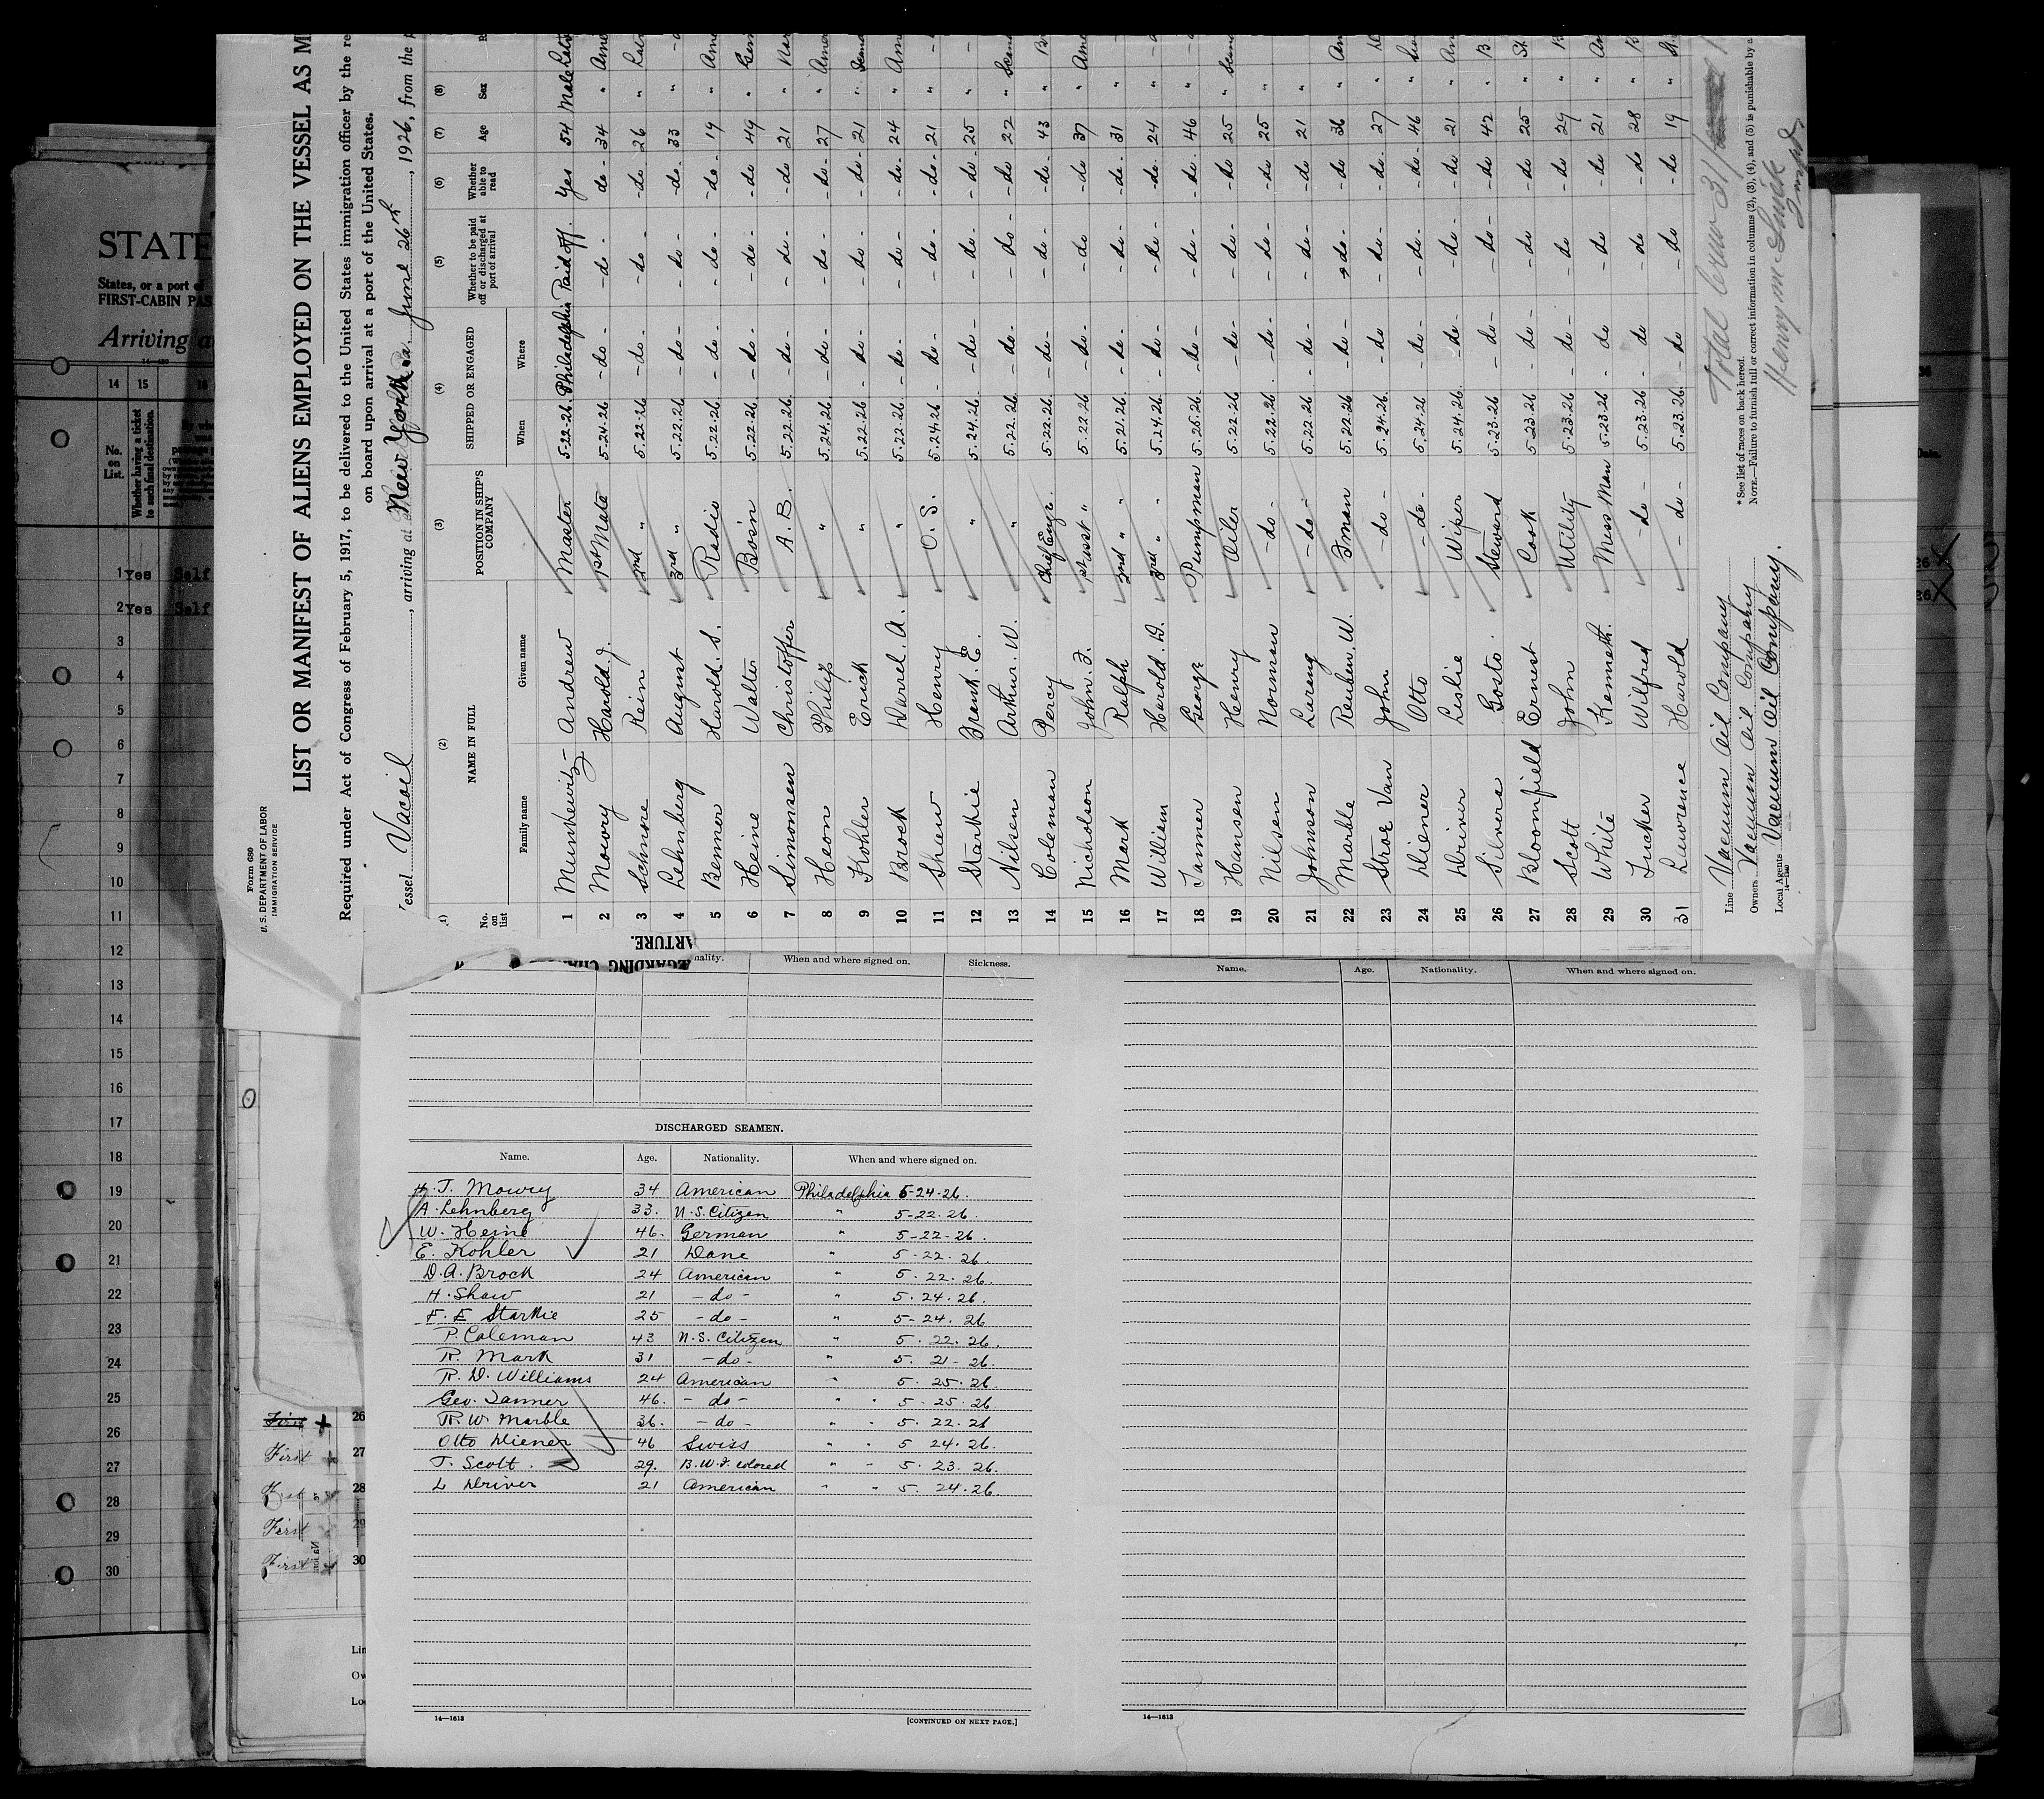 Form 680
U. S. DEPARTMENT OF LABOR
IMMIGRATION SERVICE
LIST OR MANIFEST OF ALIENS EMPLOYED ON THE VESSEL AS M
Required under Act of Congress of February 5, 1917, to be delivered to the United States immigration officer by the re
on board upon arrival at a port of the United States.
essel Vacoil, arriving at New York, June 26th, 1926, from the p
(1) (2) (3) (4) (5) (6) (7) (8)
No. on list NAME IN FULL POSITION IN SHIP'S COMPANY SHIPPED OR ENGAGED Whether to be paid off or discharged at port of arrival Whether able to read Age Sex R
Family name Given name When Where
1 Munkewitz Andrew Master 5.22.26. Philadelphia Paid off. Yes 54 Male
2 Mowry Harold. J. 1st Mate 5.24.26 -do- -do- -do- 34 " Ame
3 Schnore Rein 2nd " 5.22.26 -do- -do- -do- 26 "
4 Lehnberg August 3rd " 5.22.26 -do- -do- -do- 33 "
5 Benner Harold. S. Radio 5.22.26. -do- -do- -do- 19 " Ame
6 Heine Walter Bos'n 5.22.26. -do- -do- -do 49 " Germ
7 Simonsen Christoffer A. B. 5.22.26. -do- -do- -do- 21 " Nor
8 Heon Philip " 5.24.26. -do- -do- -do- 27 " Amer
9 Kohler Erick " 5.22.26 -do- -do- -do- 21 " Scand
10 Brock Darrel. A. " 5.22.26. -do- -do- -do- 24 " Am
11 Shaw Henry O. S. 5.24.26 -do- -do- -do- 21 "
12 Starkie Frank. E. " 5.24.26. -do- -do- -do- 25 "
13 Nilsen Arthur. W. " 5.22.26 -do- -do- -do- 22 " Scand
14 Coleman Percy Chief Engr. 5.22.26. -do- -do- -do- 43 "
15 Nicholson John. F. 1st asst " 5.22.26 -do- -do -do- 37 " Ame
16 Mark Ralph 2nd " " 5.21.26. -do- -do- -do- 31 "
17 William Harold. D. 3rd " " 5.24.26. -do- -do- -do- 24 "
18 Tanner George Pumpman 5.25.26 -do- -do- -do- 46 "
19 Hansen Henry Oiler 5.22.26 -do- -do- -do 25 " Scand
20 Nilsen Norman -do- 5.22.26. -do- -do- -do 25 "
21 Johnson -do- 5.22.26 -do- -do- -do 21 "
22 Marble Reuben. W. Fman 5.22.26 -do- -do- -do 36 " Am
23 Stroe Van John -do- 5.24.26. -do -do- -do- 27 "
24 Diener Otto -do- 5.24.26 -do- -do- -do- 46 " Sw
25 Driver Leslie Wiper 5.24.26. -do- -do- -do 21 " Am
26 Silvera Gosto. Steward 5.23.26. -do- -do- -do 42 " B.
27 Bloomfield Ernest Cook 5.23.26 -do- -do -do 25 "
28 Scott John Utility 5.23.26 -do- -do -do 29 "
29 White Kenneth. Mess Man 5.23.26 -do -do -do 21 " Am
30 Tucker Wilfred -do- 5.23.26. -do -do -do 28 "
31 Lawrence Harold -do- 5.23.26. -do -do -do 19 "
Line Vacuum Oil Company
Owners Vacuum Oil Company
Local Agents Vacuum Oil Company.
14—1240
* See list of races on back hereof.
NOTE.—Failure to furnish full or correct information in columns (2), (3), (4), and (5) is punishable by a
Total Crew 31
ARTURE.
EGARDING CH
nality. When and where signed on. Sickness.
DISCHARGED SEAMEN.
Name. Age. Nationality. When and where signed on.
H. J. Mowry 34 American Philadelphia 5-24-26.
A. Lehnberg 33. U.S. Citizen " 5-22.26.
W. Heine 46. German " 5-22-26.
E. Kohler 21 Dane " 5.22.26.
D. A. Brock 24 American " 5.22.26.
H. Shaw 21 -do- " 5.24.26.
F. E Starkie 25 -do- " 5-24.26
P. Coleman 43 U.S. Citizen " 5.22.26.
R. Mark 31 -do- " 5.21-26.
R. D. Williams 24 American " 5.25.26.
Geo. Tanner 46. -do- " " 5.25.26.
R. W. Marble 36. -do- " " 5.22.26
Otto Diener 46 Swiss " " 5 24.26.
J. Scott. 29. B.W.I. colored " " 5.23.26.
L Driver 21 American " " 5.24.26.
14—1613
[CONTINUED ON NEXT PAGE.]
Name. Age. Nationality. When and where signed on.
14—1613
STATE
States, or a port of
FIRST-CABIN PAS
Arriving a
14 15 16
No. on List.
Whether having a ticket to such final destination.
1 Yes Self
2 Yes Self
3
4
5
6
7
8
9
10
11
12
13
14
15
16
17
18
19
20
21
22
23
24
25
26
27
28
29
30
First + 26
First + 27
First 28
First 29
First 30
Lin
Ow
Lo